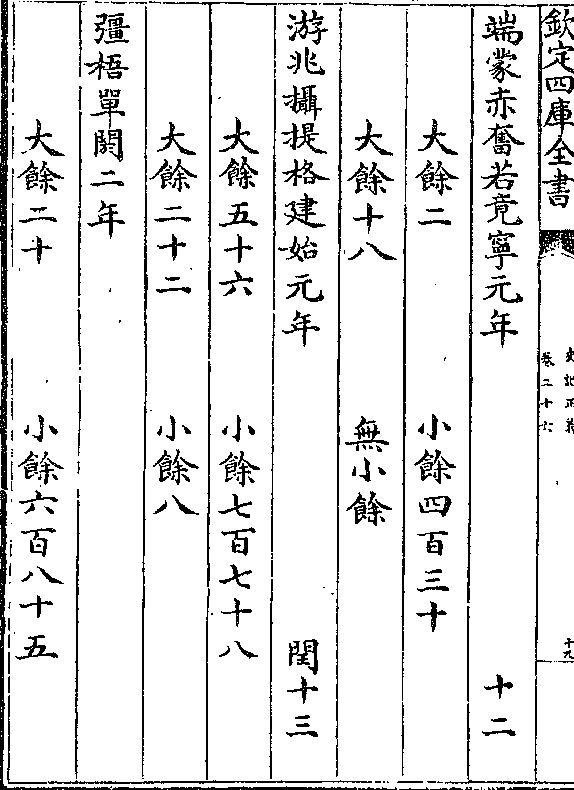 欽定四庫全書
史記正義
卷二十六
十九
端蒙赤奮若竟寧元年 十二
大餘二 小餘四百三十
大餘十八 無小餘
游兆攝提格建始元年 閏十三
大餘五十六 小餘七百七十八
大餘二十二 小餘八
彊梧單閼二年
大餘二十 小餘六百八十五